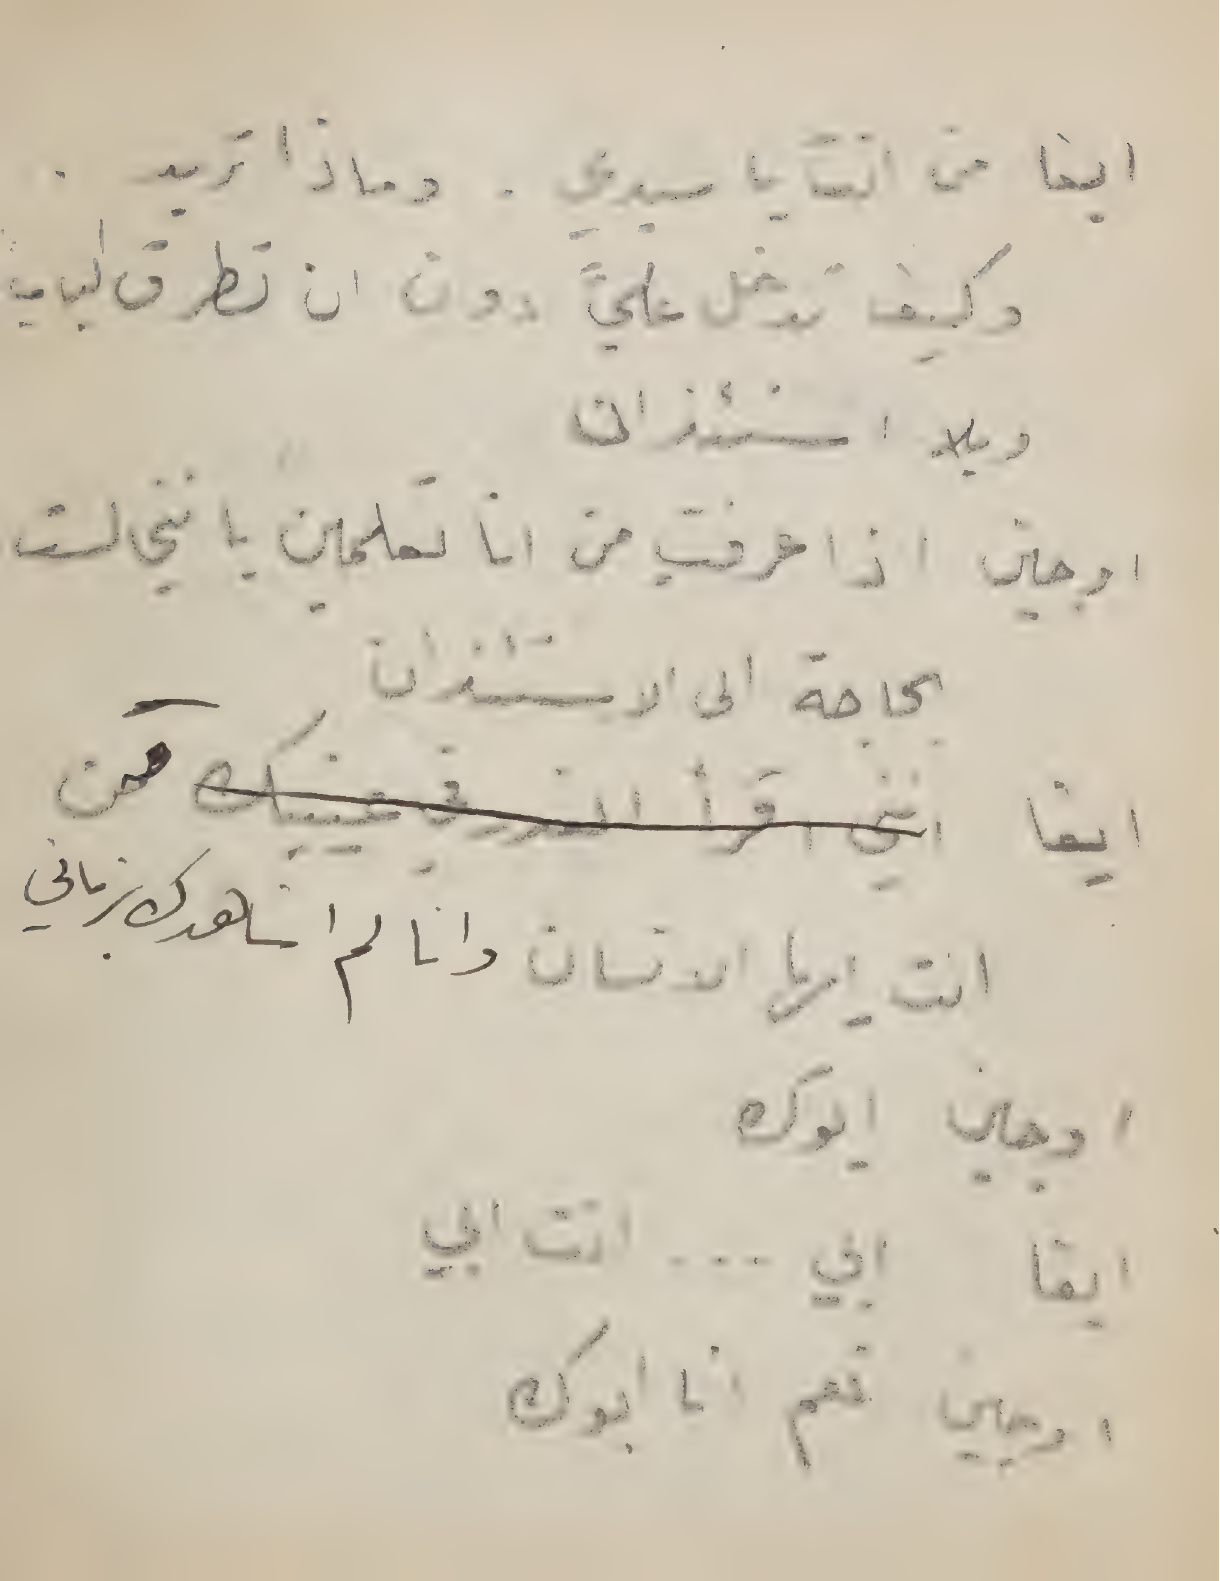 ايفا من انت يا سيدي . وماذا تريد .
وكيف تدخل عليَّ دون ان تطرق الباب
وبلا استئذان
اوجين اذا عرفتِ من انا تعلمين يا لست
بحاجة الى الاستئذان
ايفا انني اقرأ الغدر في عينيك فمن
انت ايها الانسان وانا لم اشاهدك بزماني
اوجين ابوك
ايفا ابي ... انت ابي
اوجين نعم انا ابوك